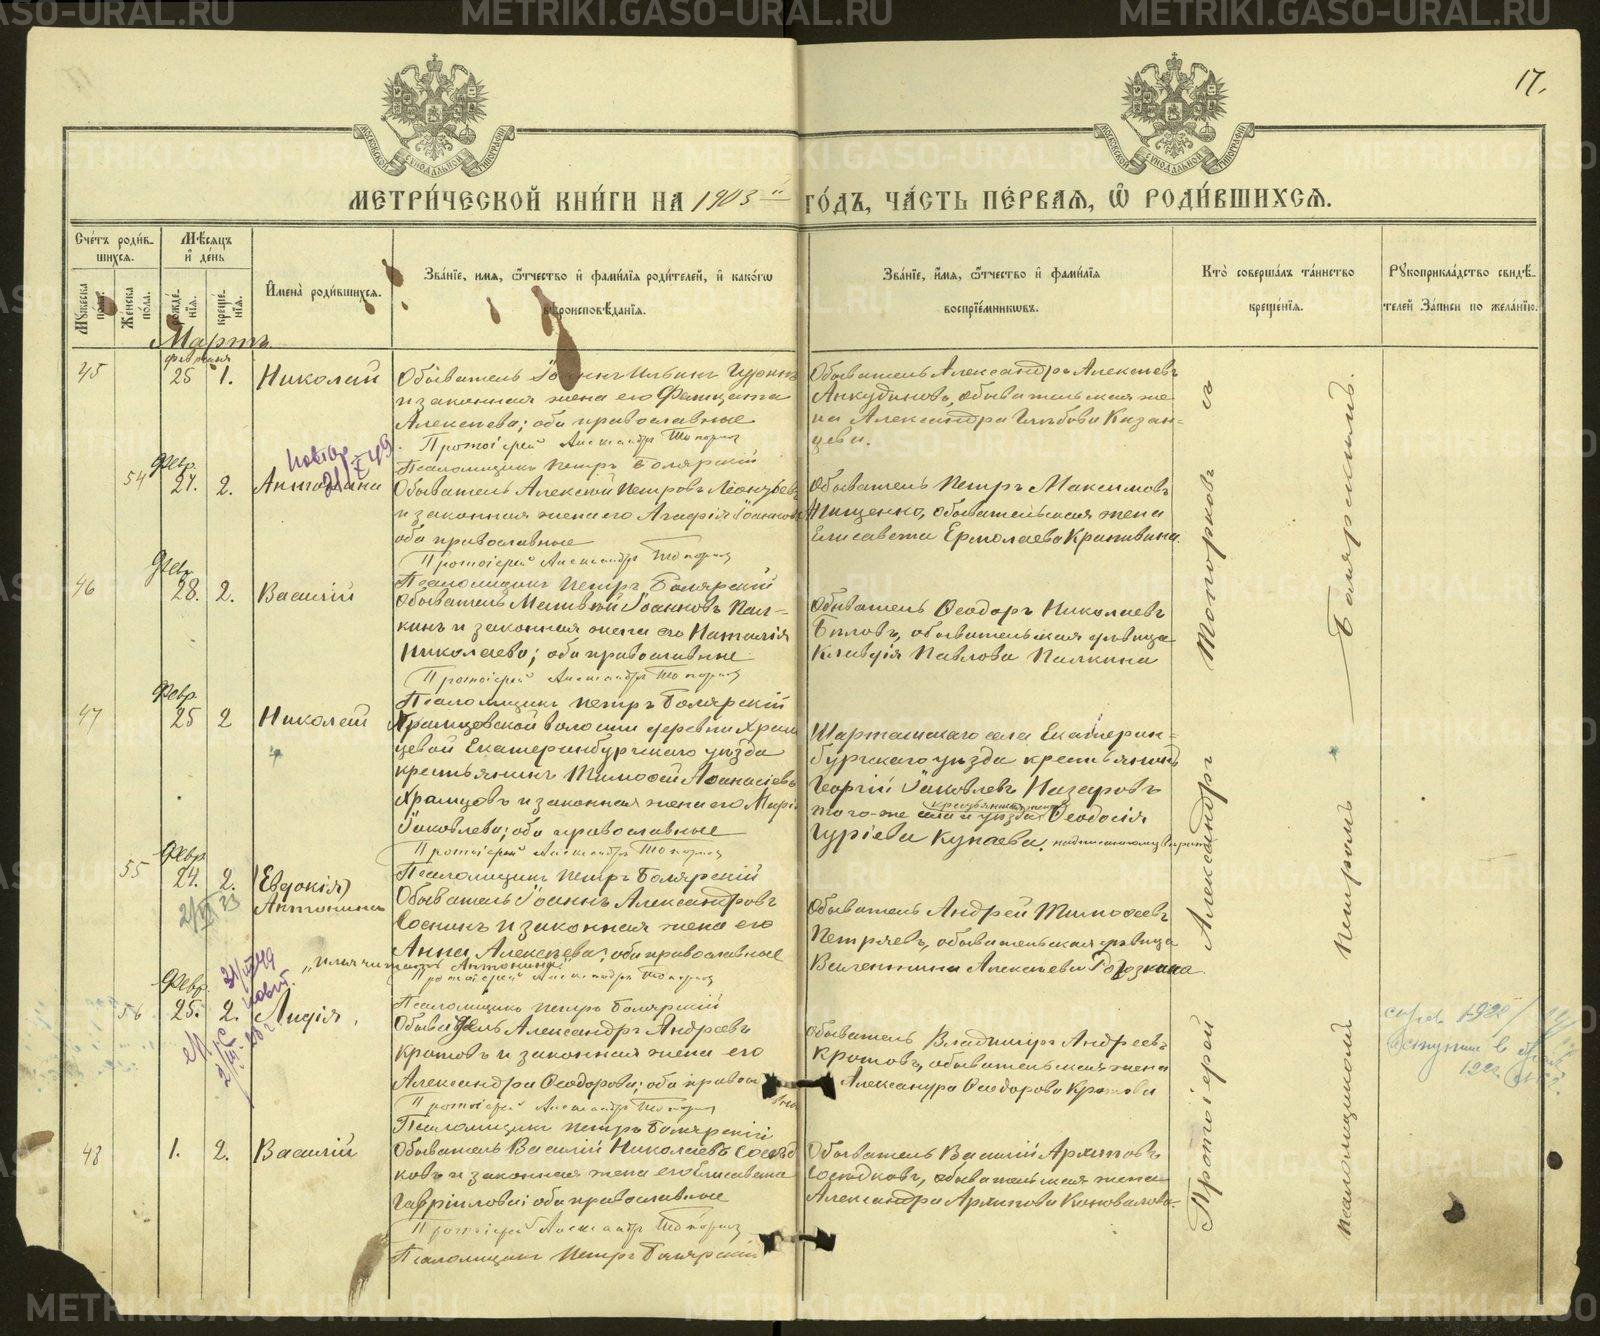 METRIKI.GASO-URAL.RU
17.
МОСКОВСКОЙ СѴНОДАЛЬНОЙ ТИПОГРАФІИ
МОСКОВСКОЙ СѴНОДАЛЬНОЙ ТИПОГРАФІИ
МЕТРИ́ЧЕСКОЙ КНИ́ГИ НА 1903 й ГО́ДЪ, ЧА́СТЬ ПЕ́РВАЯ, Ѿ РОДИ́ВШИХСЯ.
Сче́тъ роди́в-
шихся.
Мѣ́сяцъ
и҆ де́нь
Му́жеска
по́ла.
Же́нска
по́ла.
рожде́-
нія.
креще́-
нія.
И҆мена̀ роди́вшихся.
Зва́нїе, и҆мя, ѻ҆́тчество и҆ фами́лїя роди́телей, и҆ како́гѡ
вѣроисповѣ́данїя.
Зва́нїе, и҆мя, ѻ҆́тчество и҆ фами́лїя
воспрїе́мникѡвъ.
Кто̀ соверша́лъ та́инство
креще́нїя.
Рꙋкоприкла́дство свидѣ́-
телей за́писи по жела́нїю.
Мартъ
45
февраля
25 1.
Николай
Обыватель Іоаннъ Ильинъ Гуринъ
и законная жена его
Алексѣева; оба православные
Протоіерей Александръ Топорковъ
Псаломщикъ Петръ Боярскій
Обыватель Александръ Алексѣевъ
Анкудиновъ, обывательская же-
на Александра Глѣбова Казан-
цева.
54
Февр.
27. 2.
Антонина
Обыватель Алексѣй Петровъ Леонтьевъ
и законная жена его Агафія Іоаннова
оба православные
Протоіерей Александръ Топорковъ
Псаломщикъ Петръ Боярскій
Обыватель Петръ Максимовъ
Нищенко, обывательская жена
Елисавета Ермолаева Крапивина.
46
Февр.
28. 2.
Василій
Обыватель Матвѣй Іоанновъ Пал-
кинъ и законная жена его Наталія
Николаева; оба православные
Протоіерей Александръ Топорковъ
Псаломщикъ Петръ Боярскій
Обыватель Ѳеодоръ Николаевъ
Бѣловъ, обывательская дѣвица
Клавдія Павлова Палкина
47
Февр.
25 2
Николай
Храмцовской волости деревни Храм-
цевой Екатеринбургскаго уѣзда
крестьянинъ Тимофей Аѳанасіевъ
Храмцовъ и законная жена его Марія
Іаковлева; оба православные
Протоіерей Александръ Топорковъ
Псаломщикъ Петръ Боярскій
Шарташскаго села Екатерин-
бургскаго уѣзда крестьянинъ
Георгій Іаковлевъ Назаровъ
того-же села и уѣзда Ѳеодосія
Гуріева Кунаева.
55
Февр.
24. 2.
(Евдокія)
Антонина
Обыватель Іоаннъ Александровъ
Соснинъ и законная жена его
Анна Алексѣева; оба православные
Протоіерей Александръ Топорковъ
Псаломщикъ Петръ Боярскій
Обыватель Андрей Тимоѳеевъ
Петряевъ, обывательская дѣвица
Валентина Алексѣева Рогозкина
56
Февр.
25. 2.
Лидія.
Обыватель Александръ Андреевъ
Кротовъ и законная жена его
Александра Ѳеодорова; оба православ
Протоіерей Александръ Топорковъ
Псаломщикъ Петръ Боярскій
Обыватель Владиміръ Андреевъ
Кротовъ, обывательская жена
Александра Ѳеодорова Кротова
48
1. 2.
Василій
Обыватель Василій Николаевъ Сосѣд-
ковъ и законная жена его Елисавета
Гавріилова; оба православные
Протоіерей Александръ Топорковъ
Псаломщикъ Петръ Боярскій
Обыватель Василій Архиповъ
Сосѣдковъ, обывательская жена
Александра Архипова Коновалова.
Протоіерей Александръ Топорковъ съ
псаломщикомъ Петромъ Боярскимъ.